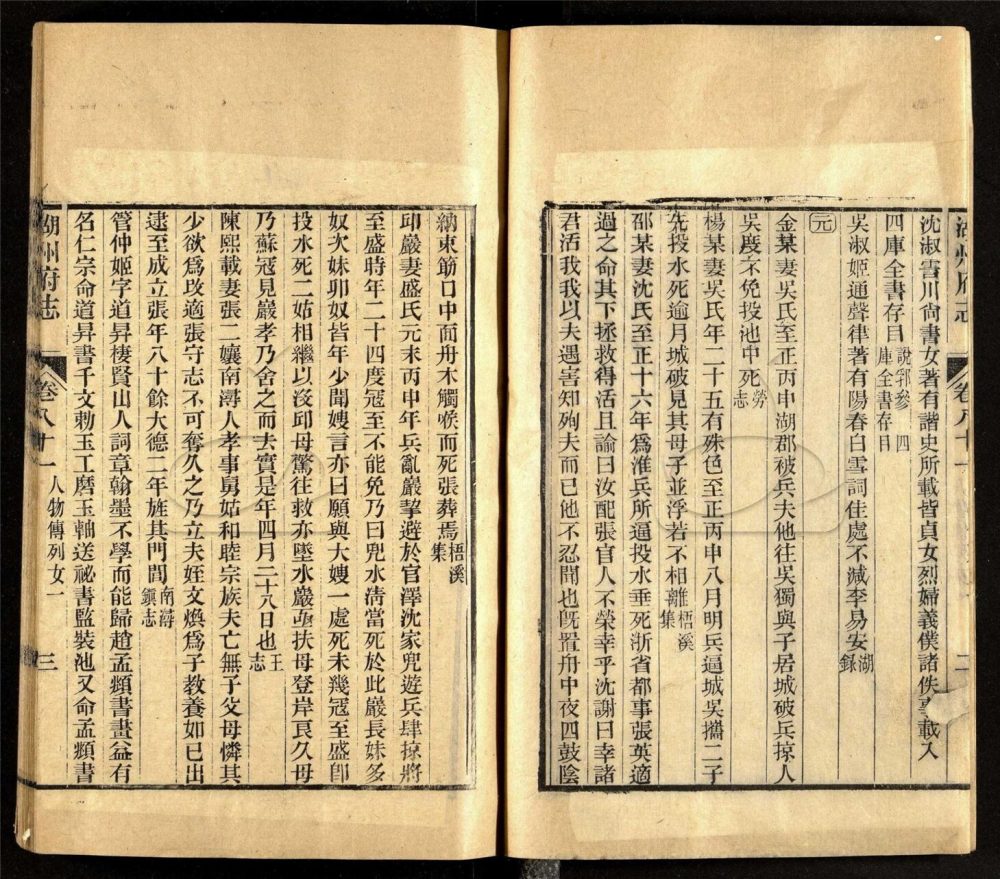 沈淑霅川尙書女著有諧史所載皆貞女烈婦義僕諸佚事載入
四庫全書存目說郛參四庫全書存目
吳淑姬通聲律著有陽春白雪詞佳處不減李易安湖錄
元
金某妻吳氏至正丙申湖郡被兵夫他往吳獨與子居城破兵掠人
吳度不免投池中死勞志
楊某妻吳氏年二十五有殊色至正丙申八月明兵逼城吳攜二子
先投水死逾月城破見其母子並浮若不相離梧溪集
邵某妻沈氏至正十六年爲淮兵所逼投水垂死浙省都事張英適
過之命其下拯救得活且諭曰汝配張官人不榮幸乎沈謝曰幸諸
君活我我以夫遇害知殉夫而已他不忍聞也旣置舟中夜四鼓陰
湖州府志
卷八十一
二
納束筋口中面舟木觸喉而死張葬焉梧溪集
邱嚴妻盛氏元末丙申年兵亂嚴挈避於官澤沈家兜遊兵肆掠將
至盛時年二十四度冦至不能免乃曰兜水淸當死於此嚴長妹多
奴次妹卯奴皆年少聞嫂言亦曰願與大嫂一處死未幾冦至盛卽
投水死二姑相繼以沒邱母驚往救亦墜水嚴亟扶母登岸良久母
乃蘇冦見嚴孝乃舍之而去實是年四月二十八日也王志
陳熙載妻張二孃南潯人孝事舅姑和睦宗族夫亡無子父母憐其
少欲爲改適張守志不可奪久之乃立夫姪文煥爲子教養如已出
逮至成立張年八十餘大德二年旌其門閭南潯鎭志
管仲姬字道昇棲賢山人詞章翰墨不學而能歸趙孟頫書畫益有
名仁宗命道昇書千文勅玉工磨玉軸送祕書監裝池又命孟頫書
湖州府志
卷八十一
人物傳列女一
三